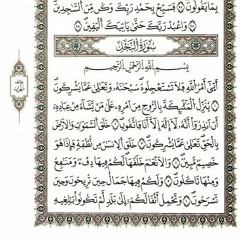 بِمَا يَقُولُونَ ۝ فَسَبِّحْ بِحَمْدِ رَبِّكَ وَكُن مِّنَ السَّاجِدِينَ
۝ وَاعْبُدْ رَبَّكَ حَتَّىٰ يَأْتِيَكَ الْيَقِينُ ۝
سُورَةُ النَّحْلِ
بِسْمِ اللَّهِ الرَّحْمَٰنِ الرَّحِيمِ
أَتَىٰ أَمْرُ اللَّهِ فَلَا تَسْتَعْجِلُوهُ سُبْحَانَهُ وَتَعَالَىٰ عَمَّا يُشْرِكُونَ
۝ يُنَزِّلُ الْمَلَائِكَةَ بِالرُّوحِ مِنْ أَمْرِهِ عَلَىٰ مَن يَشَاءُ مِنْ عِبَادِهِ
أَنْ أَنذِرُوا أَنَّهُ لَا إِلَٰهَ إِلَّا أَنَا فَاتَّقُونِ ۝ خَلَقَ السَّمَاوَاتِ وَالْأَرْضَ
بِالْحَقِّ تَعَالَىٰ عَمَّا يُشْرِكُونَ ۝ خَلَقَ الْإِنسَانَ مِن نُّطْفَةٍ فَإِذَا هُوَ
خَصِيمٌ مُّبِينٌ ۝ وَالْأَنْعَامَ خَلَقَهَا لَكُمْ فِيهَا دِفْءٌ وَمَنَافِعُ
وَمِنْهَا تَأْكُلُونَ ۝ وَلَكُمْ فِيهَا جَمَالٌ حِينَ تُرِيحُونَ وَحِينَ
تَسْرَحُونَ ۝ وَتَحْمِلُ أَثْقَالَكُمْ إِلَىٰ بَلَدٍ لَّمْ تَكُونُوا بَالِغِيهِ